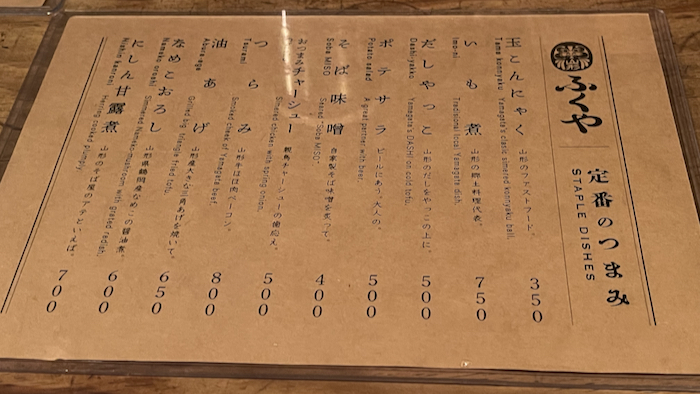 ふくや
定番のつまみ
STAPLE DISHES
玉こんにゃく 山形のファストフード。 350
Tama konnyaku Yamagata's classic simmered konnyaku ball.
いも煮 山形の郷土料理代表。 750
Imo-ni Traditional local Yamagata dish.
だしやっこ 山形のだしをやっこの上に。 500
Dashiyakko Yamagata's DASHI on cold tofu.
ポテサラ ビールにあう。大人の。 500
Potato salad A great partner with beer.
そば味噌 自家製そば味噌を炙って。 400
Soba MISO Seared "Soba MISO".
おつまみチャーシュー 親鳥チャーシューの歯応え。 500
Simmered chicken with spring onion.
つらみ 山形牛ほほ肉ベーコン。 800
Tsurami Smoked cheek of Yamagata beef.
油あげ 山形産大きな三角あげを焼いて。 650
Abura-age Grilled big triangle fried tofu.
なめこおろし 山形県鶴岡産なめこの醤油煮。 600
Nameko oroshi Simmered Nameko mushroom with grated radish.
にしん甘露煮 山形のそば屋のアテといえば。 700
Nishin kanroni Herring cooked plumply.